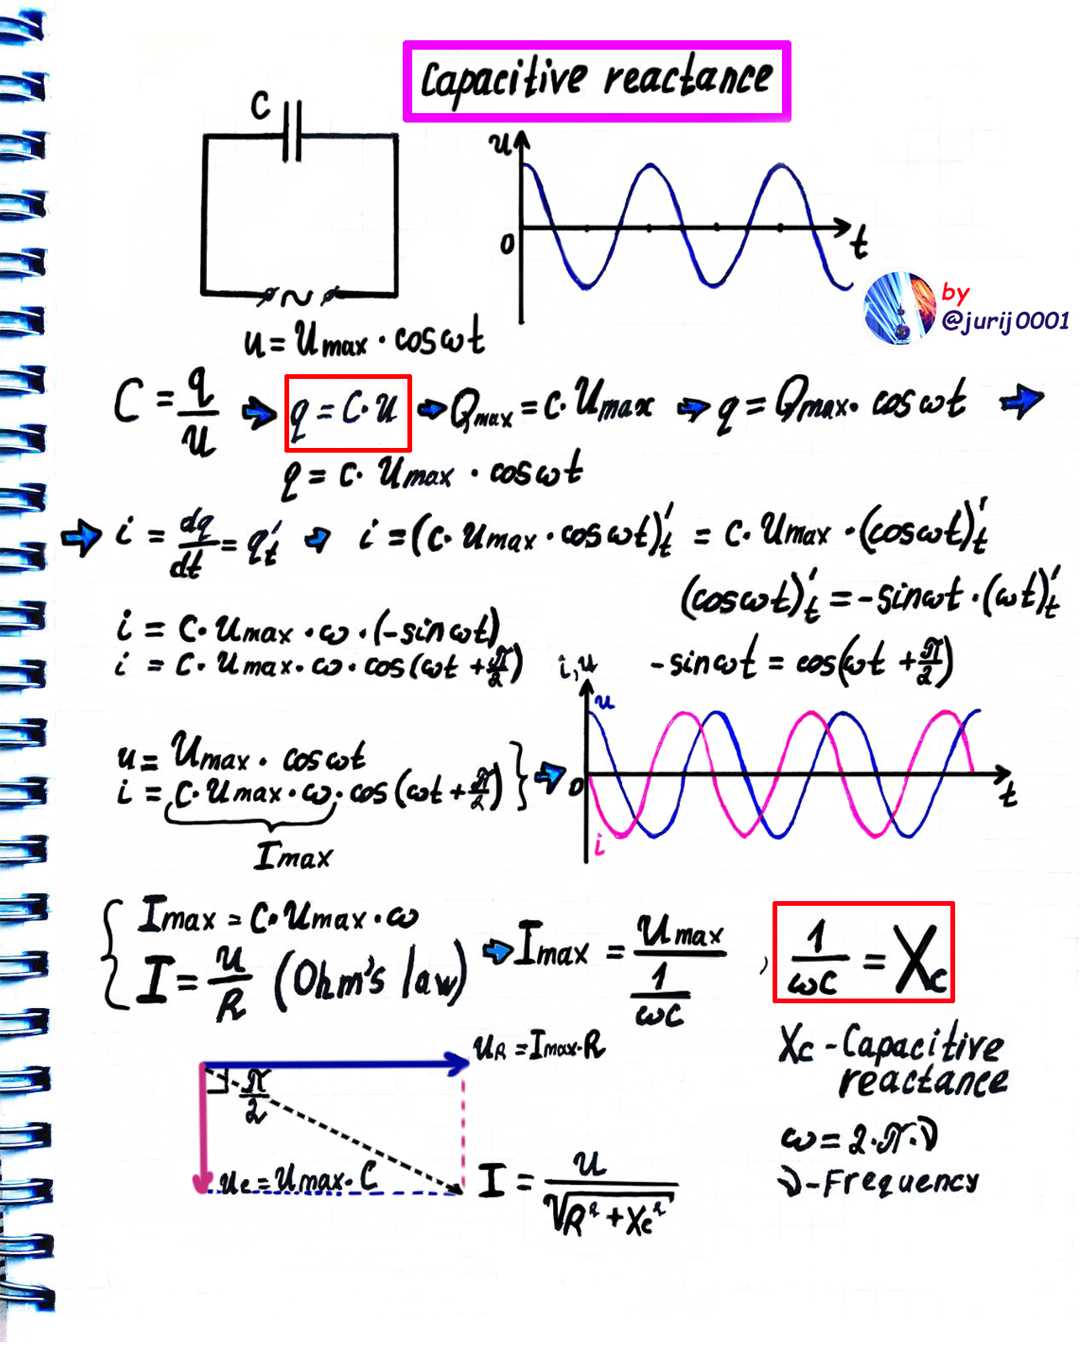 Capacitive reactance
C
u
0
t
~
by
@jurij0001
u = Umax · cosωt
C = q/u ⇒ q = C·u ⇒ Qmax = C·Umax ⇒ q = Qmax · cosωt ⇒
q = C· Umax · cosωt
⇒ i = dq/dt = q't ⇒ i = (C· Umax · cosωt)'t = C· Umax · (cosωt)'t
(cosωt)'t = -sinωt · (ωt)'t
i = C· Umax · ω · (-sinωt)
i = C· Umax · ω · cos(ωt + π/2)
-sinωt = cos(ωt + π/2)
i, u
u
0
t
i
u = Umax · cosωt
i = C· Umax · ω · cos(ωt + π/2) } ⇒
Imax
{ Imax = C· Umax · ω
I = u/R (Ohm's law)
⇒ Imax = Umax / (1/ωC) , 1/ωC = Xc
Xc - Capacitive
reactance
uR = Imax·R
π/2
uc = Umax · C
ω = 2·π·ν
ν - Frequency
I = u / √(R² + Xc²)